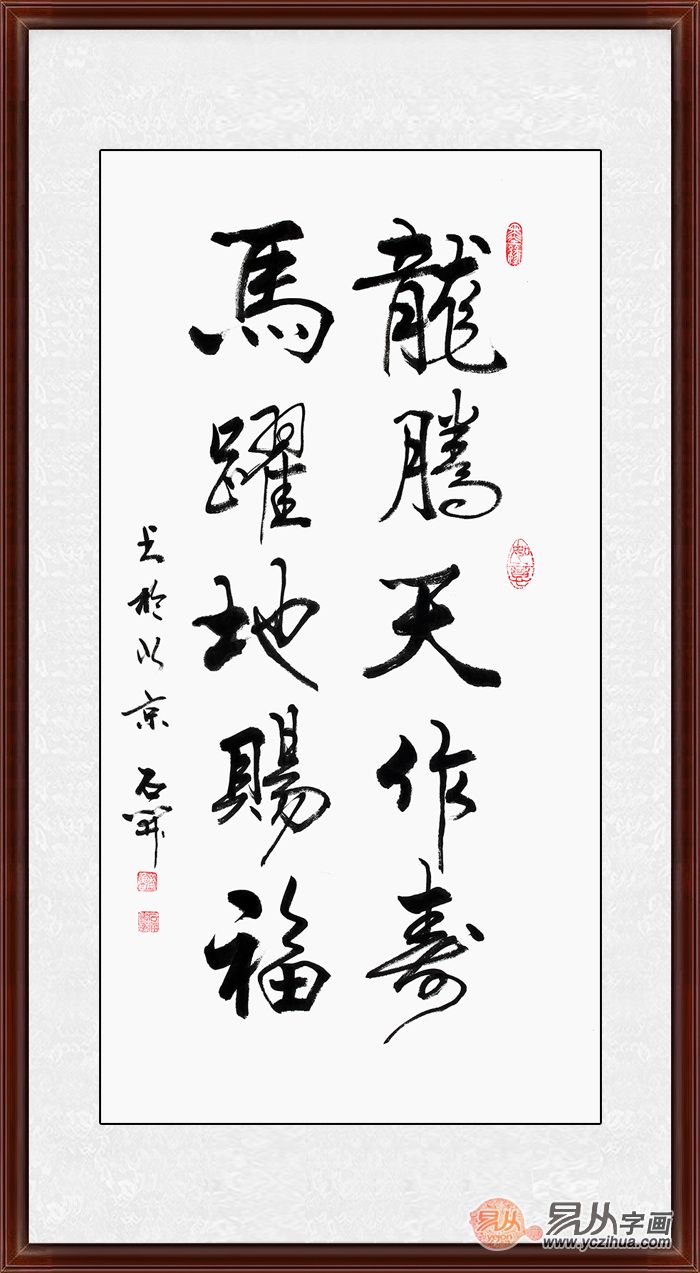 龍騰天作寿
馬躍地赐福
书於北京 石开
易从字画
www.yczihua.com